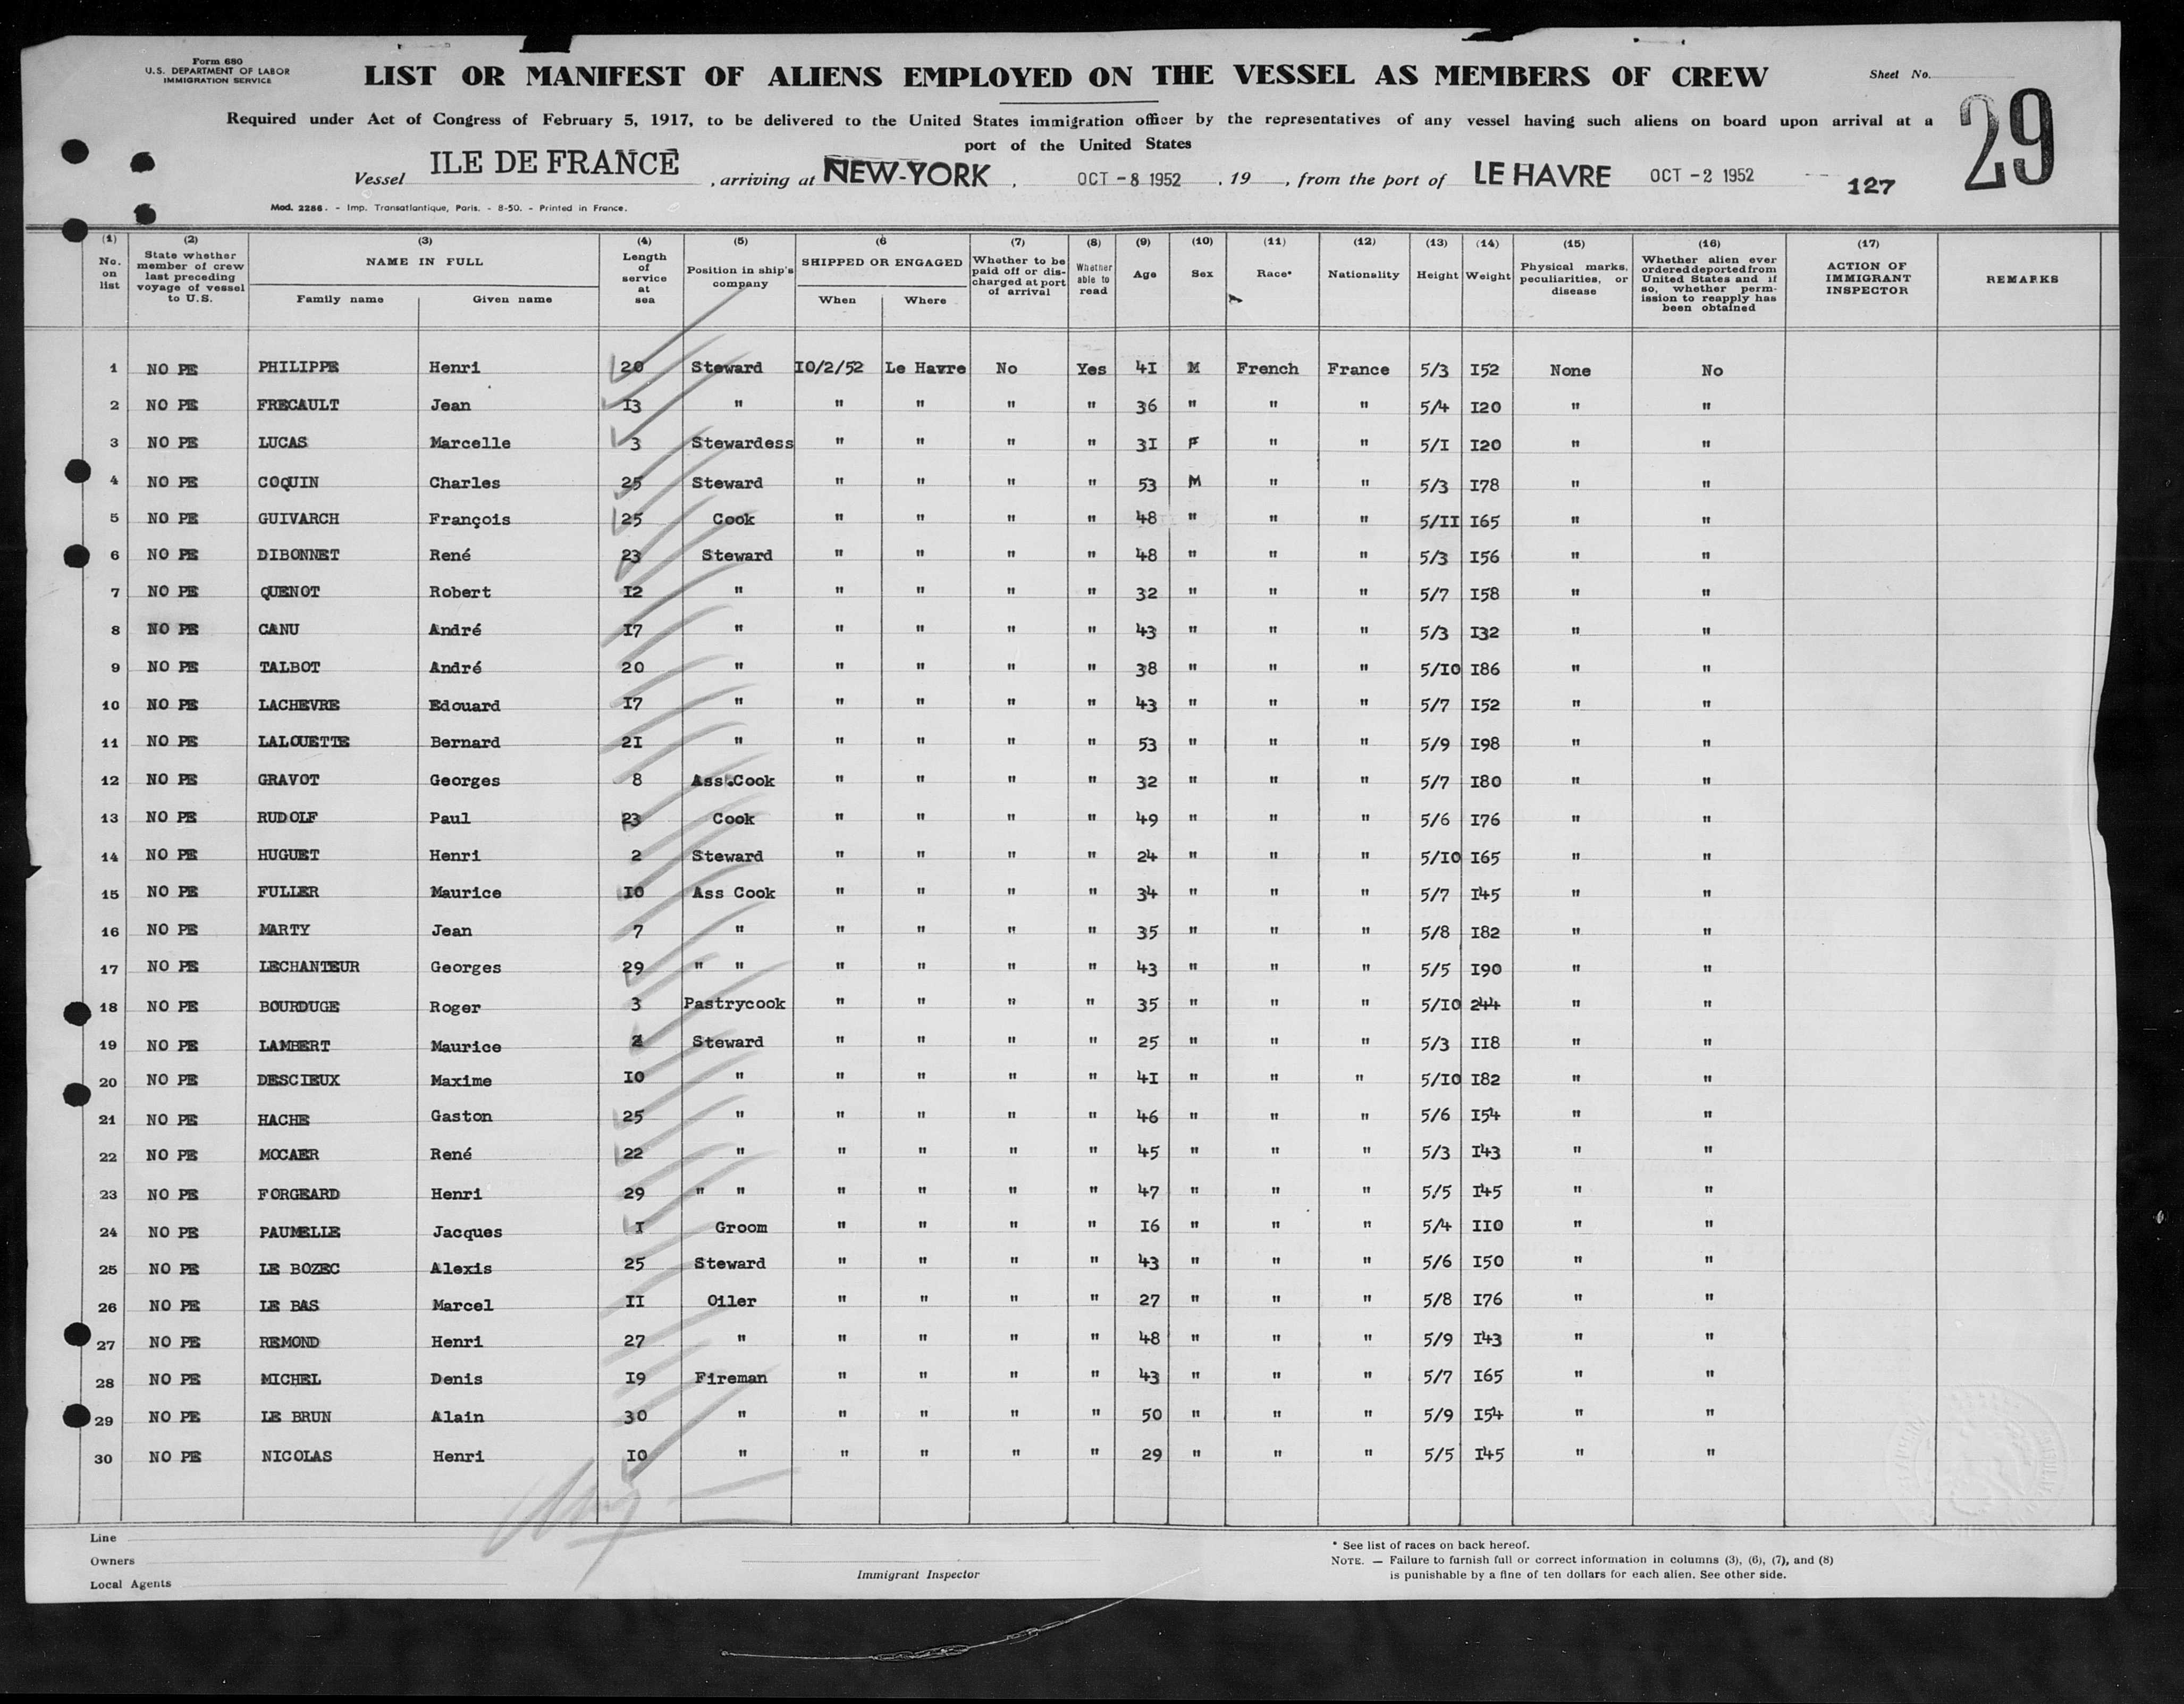 Form 680
U.S. DEPARTMENT OF LABOR
IMMIGRATION SERVICE
LIST OR MANIFEST OF ALIENS EMPLOYED ON THE VESSEL AS MEMBERS OF CREW
Sheet No.
29
Required under Act of Congress of February 5, 1917, to be delivered to the United States immigration officer by the representatives of any vessel having such aliens on board upon arrival at a
port of the United States
Vessel ILE DE FRANCE , arriving at NEW-YORK , OCT - 8 1952 , 19 , from the port of LE HAVRE OCT - 2 1952 127
Mod. 2286. - Imp. Transatlantique, Paris. - 8-50. - Printed in France.
(1) (2) (3) (4) (5) (6 (7) (8) (9) (10) (11) (12) (13) (14) (15) (16) (17)
No. on list
State whether member of crew last preceding voyage of vessel to U.S.
NAME IN FULL
Family name Given name
Length of service at sea
Position in ship's company
SHIPPED OR ENGAGED
When Where
Whether to be paid off or discharged at port of arrival
Whether able to read
Age
Sex
Race*
Nationality
Height
Weight
Physical marks, peculiarities, or disease
Whether alien ever ordered deported from United States and if so, whether permission to reapply has been obtained
ACTION OF IMMIGRANT INSPECTOR
REMARKS
1 NO PE PHILIPPE Henri 20 Steward 10/2/52 Le Havre No Yes 4I M French France 5/3 I52 None No
2 NO PE FRECAULT Jean I3 " " " " " 36 " " " 5/4 I20 " "
3 NO PE LUCAS Marcelle 3 Stewardess " " " " 3I F " " 5/I I20 " "
4 NO PE COQUIN Charles 25 Steward " " " " 53 M " " 5/3 I78 " "
5 NO PE GUIVARCH François 25 Cook " " " " 48 " " " 5/II I65 " "
6 NO PE DIBONNET René 23 Steward " " " " 48 " " " 5/3 I56 " "
7 NO PE QUENOT Robert I2 " " " " " 32 " " " 5/7 I58 " "
8 NO PE CANU André I7 " " " " " 43 " " " 5/3 I32 " "
9 NO PE TALBOT André 20 " " " " " 38 " " " 5/I0 I86 " "
10 NO PE LACHEVRE Edouard I7 " " " " " 43 " " " 5/7 I52 " "
11 NO PE LALOUETTE Bernard 2I " " " " " 53 " " " 5/9 I98 " "
12 NO PE GRAVOT Georges 8 Ass.Cook " " " " 32 " " " 5/7 I80 " "
13 NO PE RUDOLF Paul 23 Cook " " " " 49 " " " 5/6 I76 " "
14 NO PE HUGUET Henri 2 Steward " " " " 24 " " " 5/I0 I65 " "
15 NO PE FULLER Maurice I0 Ass Cook " " " " 34 " " " 5/7 I45 " "
16 NO PE MARTY Jean 7 " " " " " 35 " " " 5/8 I82 " "
17 NO PE LECHANTEUR Georges 29 " " " " " " 43 " " " 5/5 I90 " "
18 NO PE BOURDUGE Roger 3 Pastrycook " " " " 35 " " " 5/I0 244 " "
19 NO PE LAMBERT Maurice 2 Steward " " " " 25 " " " 5/3 II8 " "
20 NO PE DESCIEUX Maxime I0 " " " " " 4I " " " 5/I0 I82 " "
21 NO PE HACHE Gaston 25 " " " " " 46 " " " 5/6 I54 " "
22 NO PE MOCAER René 22 " " " " " 45 " " " 5/3 I43 " "
23 NO PE FORGEARD Henri 29 " " " " " " 47 " " " 5/5 I45 " "
24 NO PE PAUMELLE Jacques I Groom " " " " I6 " " " 5/4 II0 " "
25 NO PE LE BOZEC Alexis 25 Steward " " " " 43 " " " 5/6 I50 " "
26 NO PE LE BAS Marcel II Oiler " " " " 27 " " " 5/8 I76 " "
27 NO PE REMOND Henri 27 " " " " " 48 " " " 5/9 I43 " "
28 NO PE MICHEL Denis I9 Fireman " " " " 43 " " " 5/7 I65 " "
29 NO PE LE BRUN Alain 30 " " " " " 50 " " " 5/9 I54 " "
30 NO PE NICOLAS Henri I0 " " " " " 29 " " " 5/5 I45 " "
Line
Owners
Local Agents
Immigrant Inspector
* See list of races on back hereof.
NOTE. — Failure to furnish full or correct information in columns (3), (6), (7), and (8)
is punishable by a fine of ten dollars for each alien. See other side.